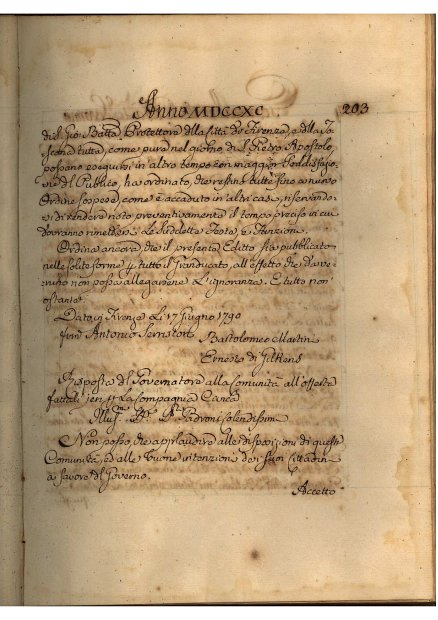 Anno MDCCXC 203
di S. Gio: Batta, Protettore della Città di Firenze, e della To-
scana tutta, come pure nel giorno di S. Pietro Apostolo,
possano eseguirsi in altro tempo con maggior soddisfazio-
ne del Pubblico, ha ordinato, che restino tutte fino a nuovo
Ordine sospese, come è accaduto in altri casi, riservando-
si di rendere noto preventivamente il tempo preciso in cui
dovranno rimettersi le suddette Feste e funzioni.
Ordina ancora, che il presente Editto sia pubblicato
nelle solite forme p tutto il Granducato, all'effetto che da ve-
runo non possa allegarsene l'ignoranza. E tutto non
ostante.
Data in Firenze li 17 Giugno 1790
Antonio Serristori
Bartolomeo Martini
Ernesto di Gilkens
Risposta del Governatore alla Comunità all'offerta
fattali jeri p la Compagnia Civica
Illmi. Sri. Pri. Padroni Colendissimi
Non posso, che applaudire alle disposizioni di questa
Comunità, ed alle buone intenzioni dei suoi Cittadini
a favore del Governo.
Accetto